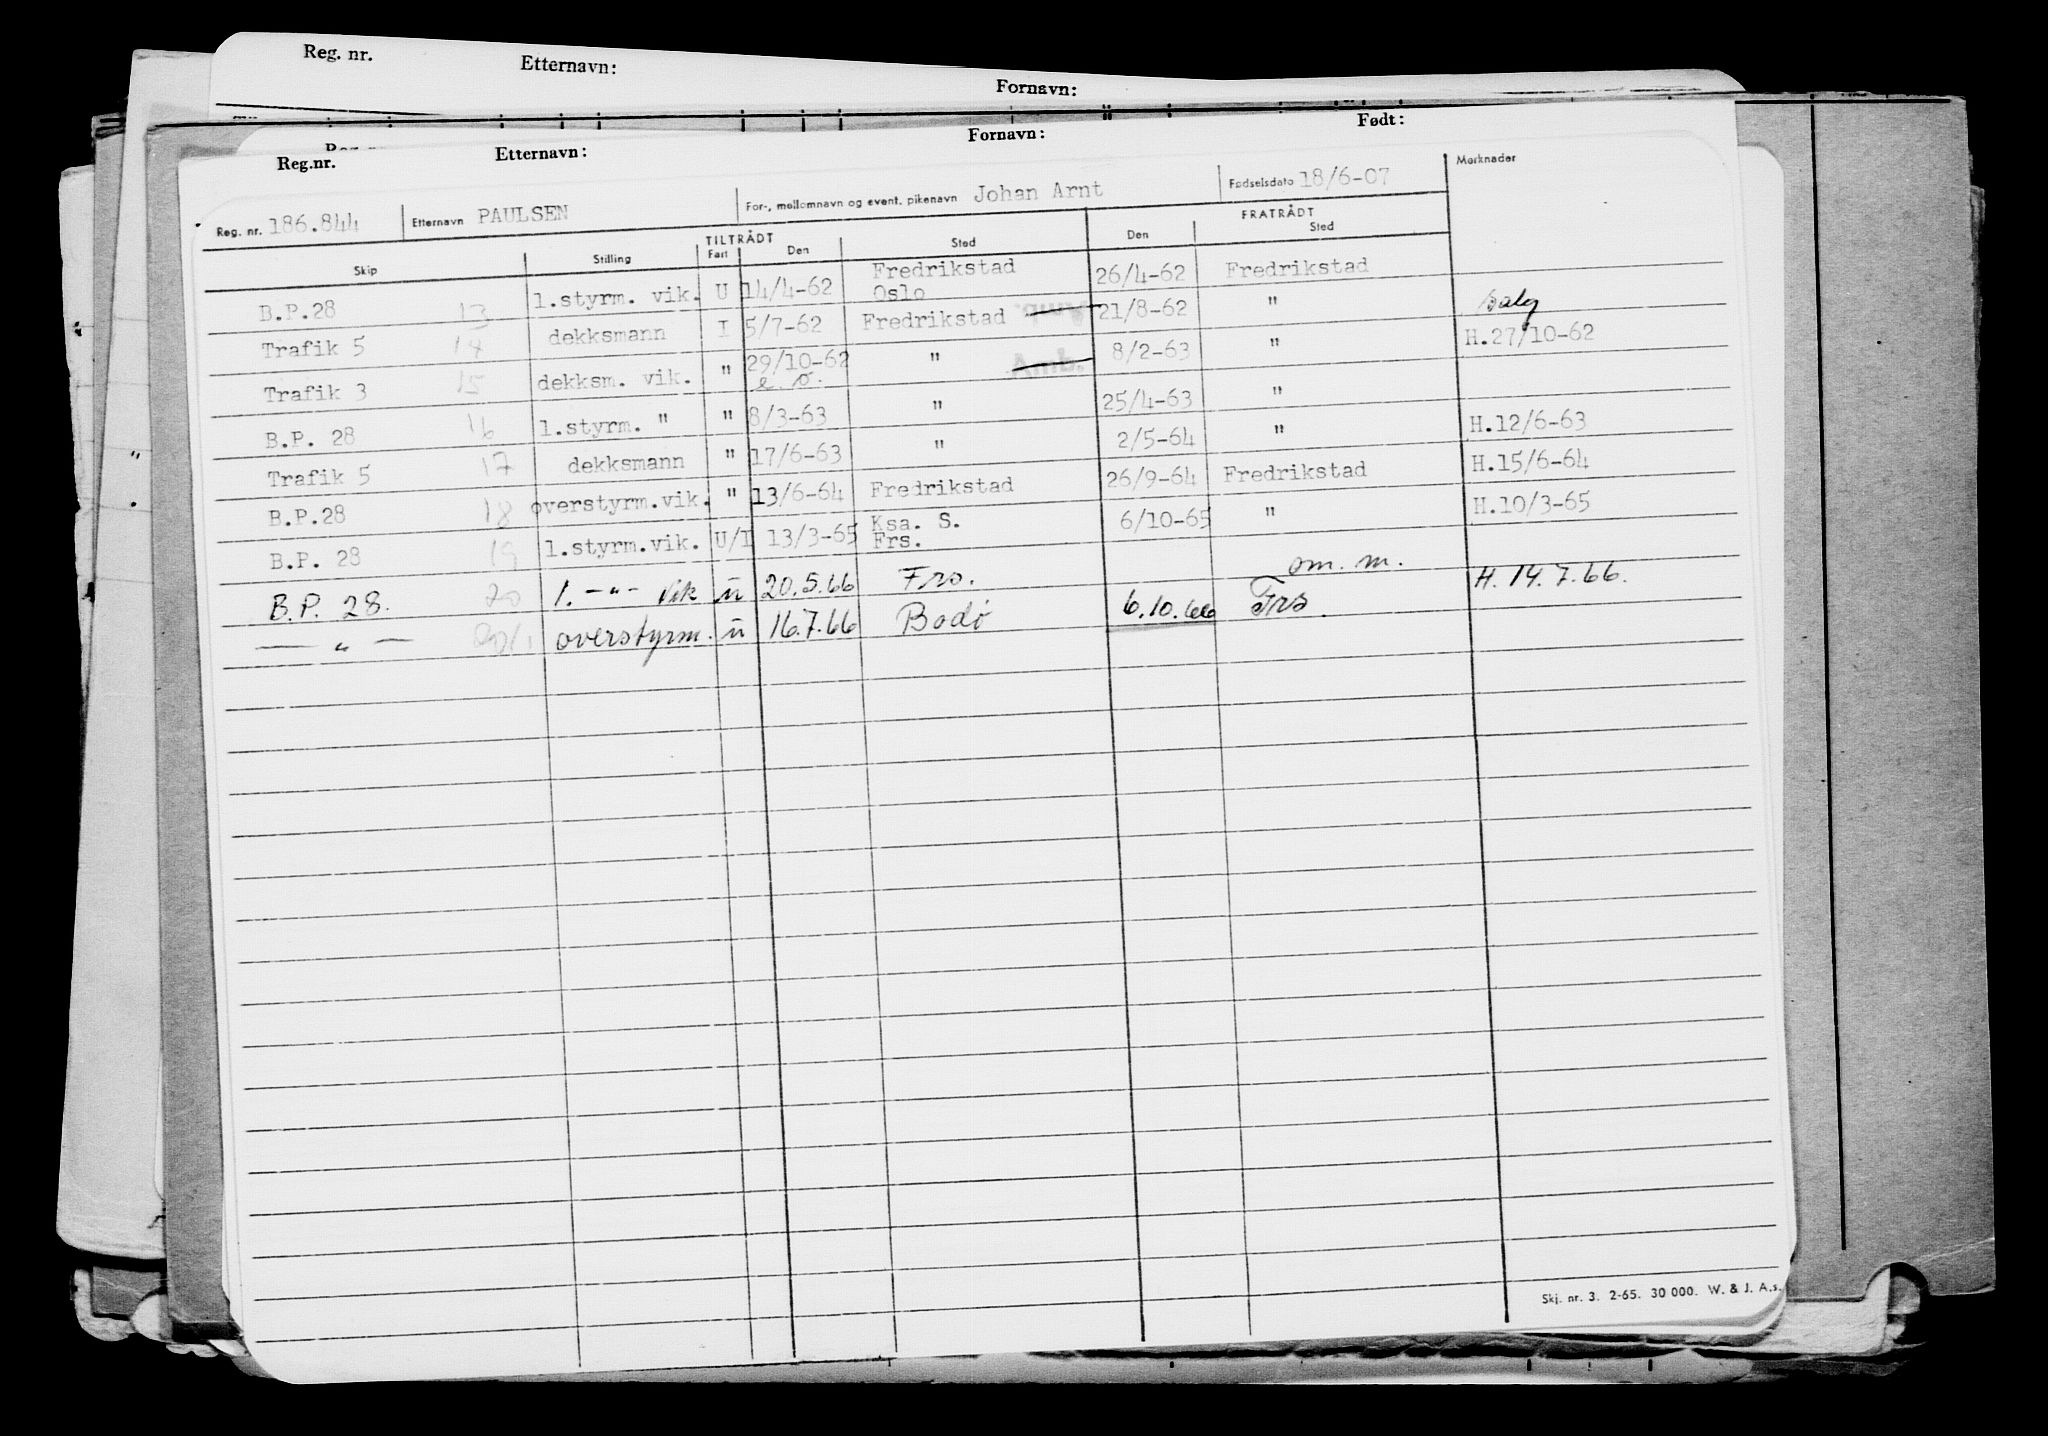 Reg. nr. Etternavn: Fornavn:
Reg.nr. Etternavn: Fornavn: Født:
Reg. nr. 186.844 Etternavn PAULSEN For-, mellomnavn og event. pikenavn Johan Arnt Fødselsdato 18/6-07 Merknader
TILTRÅDT FRATRÅDT
Skip Stilling Fart Den Sted Den Sted
B.P.28 13 1.styrm. vik. U 14/4-62 Fredrikstad 26/4-62 Fredrikstad
Oslo
Trafik 5 14 dekksmann I 5/7-62 Fredrikstad 21/8-62 "
Trafik 3 15 dekksm. vik. " 29/10-62 " Amb. 8/2-63 " H.27/10-62
e. o.
B.P. 28 16 1.styrm. " " 8/3-63 " 25/4-63 "
Trafik 5 17 dekksmann " 17/6-63 " 2/5-64 " H.12/6-63
B.P.28 18 overstyrm.vik. " 13/6-64 Fredrikstad 26/9-64 Fredrikstad H.15/6-64
B.P. 28 19 1.styrm.vik. U/I 13/3-65 Ksa. S. 6/10-65 " H.10/3-65
Frs.
B.P. 28. 20 1. -"- vik u 20.5.66 Frs. om. m. H. 14.7.66.
— " — overstyrm. u 16.7.66 Bodø 6.10.66 Frs.
Skj. nr. 3. 2-65. 30 000. W. & J. A.s.